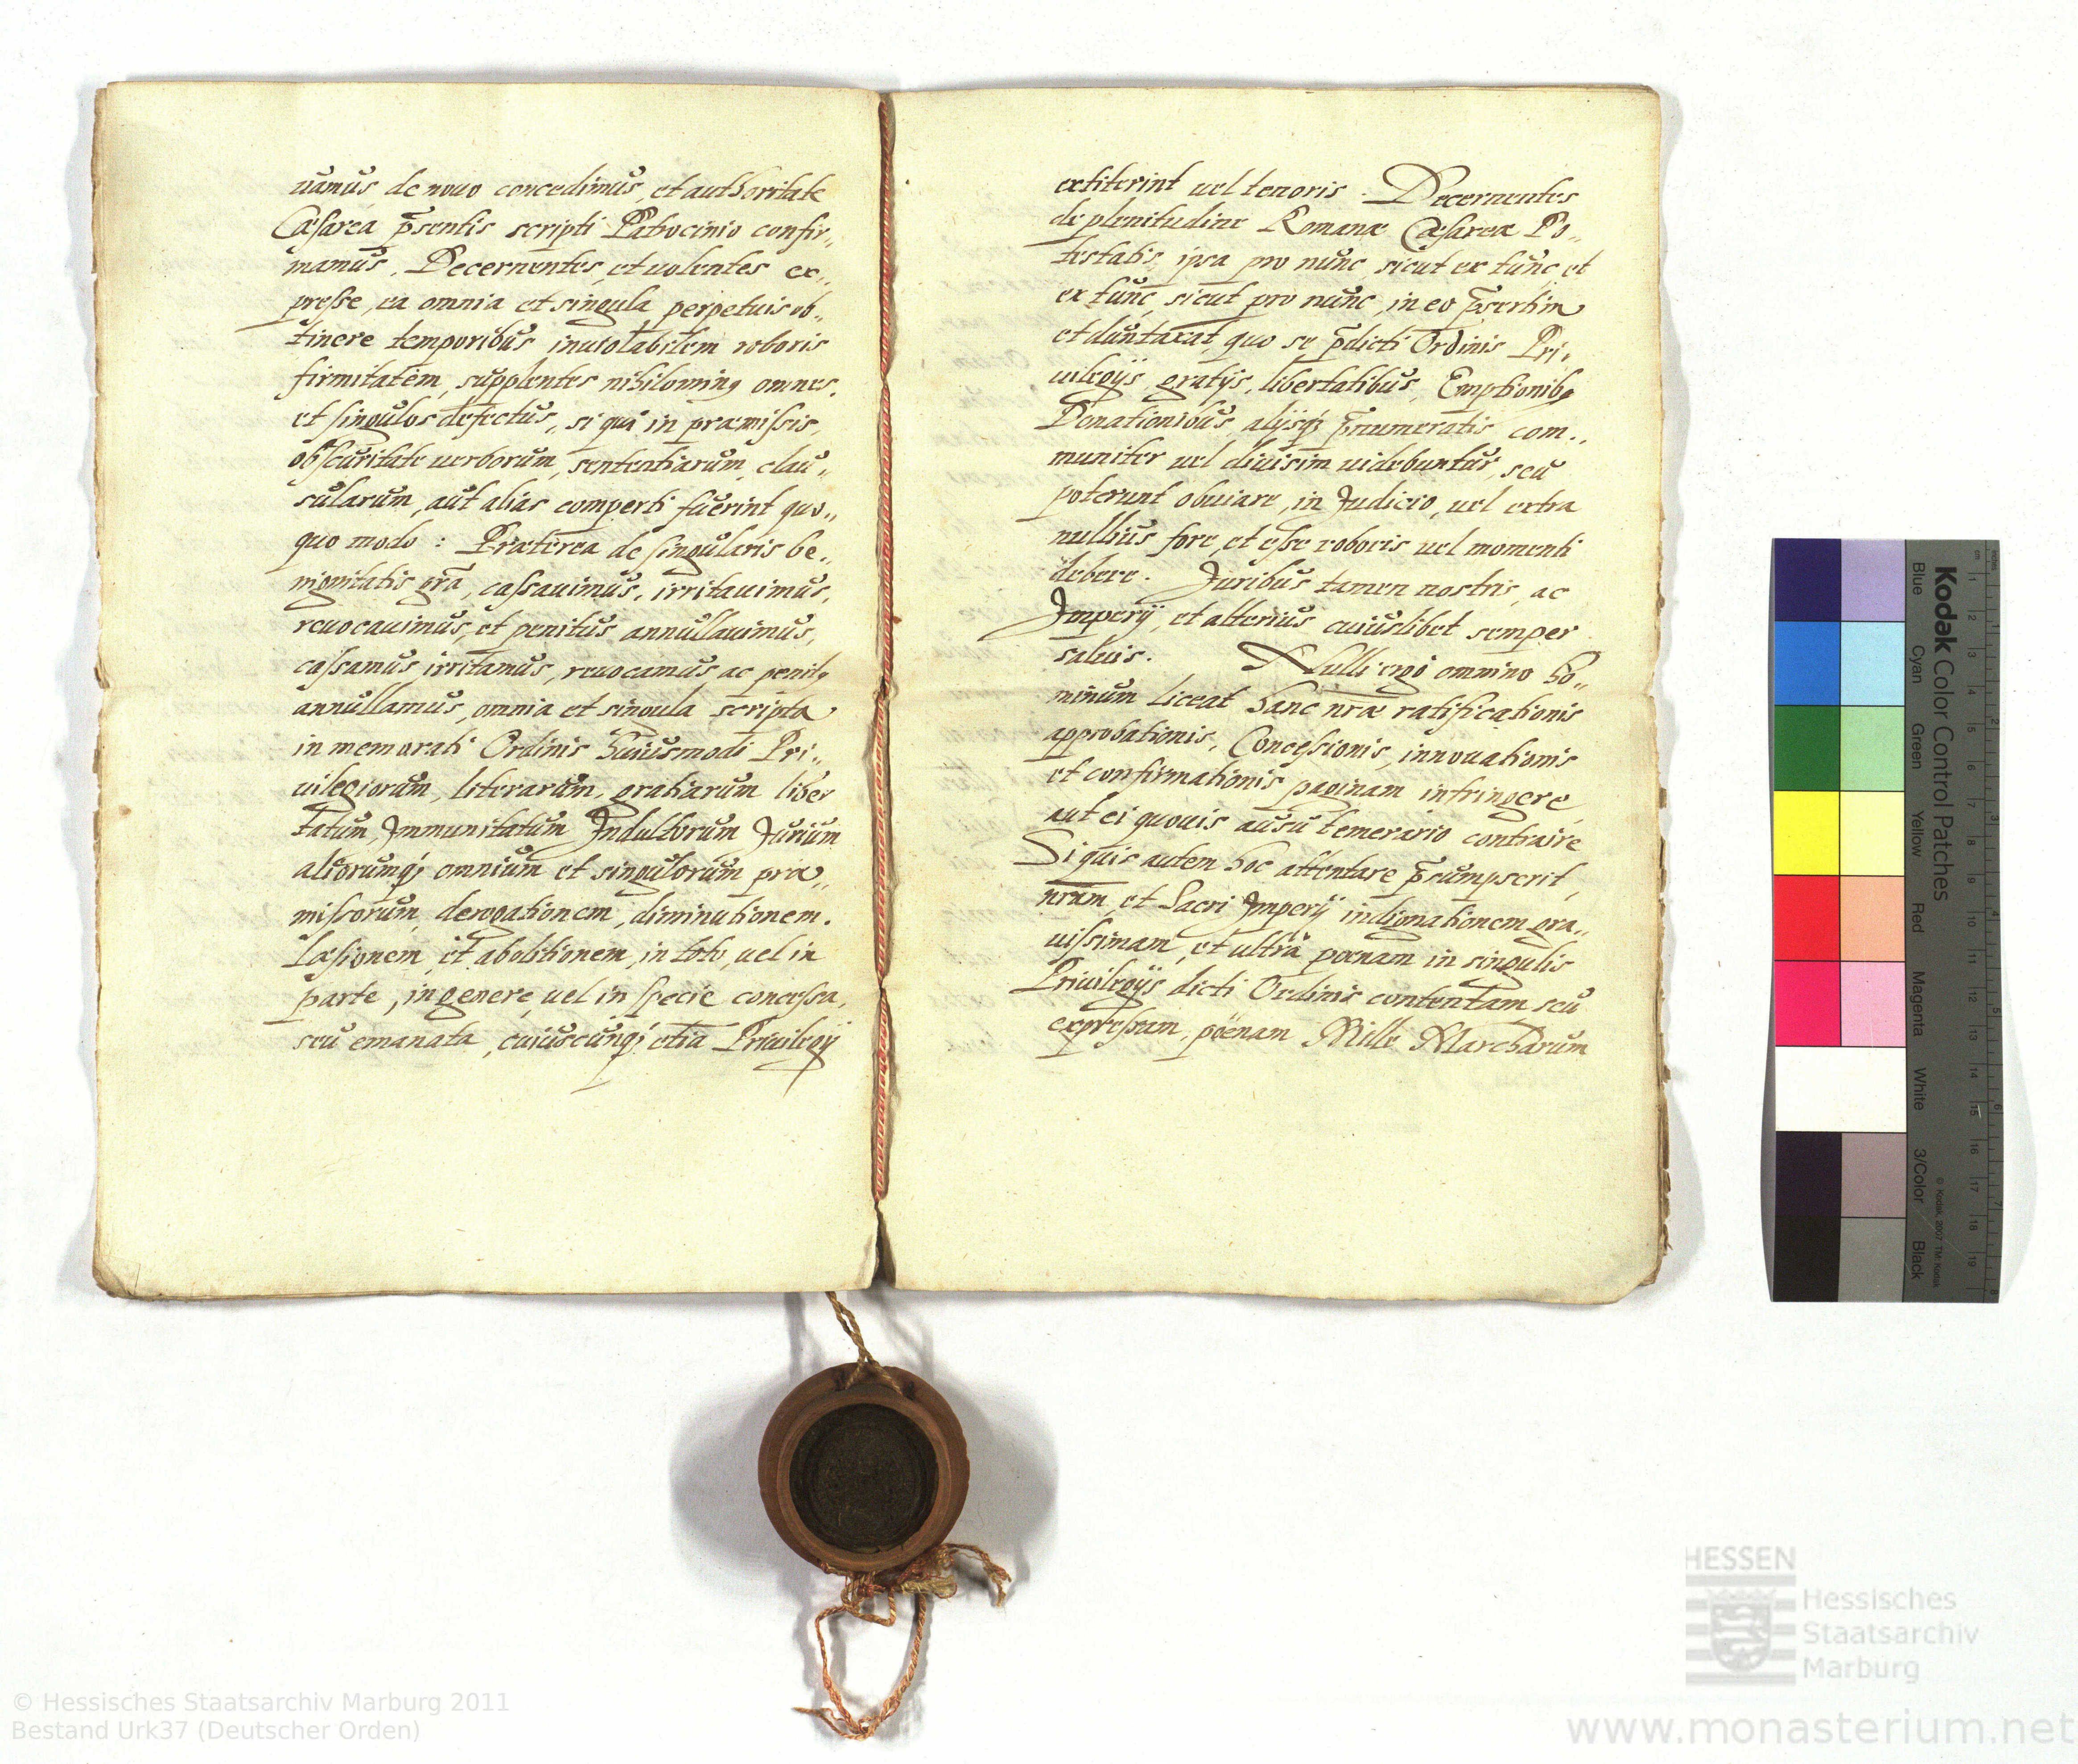 uamus de nouo concedimus, et authoritate
Cæsarea p̄sentis scripti Patrocinio confir„
mamus. Decernentes, et uolentes ex„
presse, ea omnia et singula perpetuis ob„
tinere temporibus inuiolabilem roboris
firmitatem, supplentes nihilominꝰ omnes.
et singulos defectus, si qui in præmissis,
obscuritate uerborum, sententiarum, clau„
sularum, aut alias comperti fuerint quo„
quo modo : Præterea de singularis be„
nignitatis gr̄a, cassauimus, irritauimus,
reuocauimus, et penitus annullauimus,
cassamus, irritamus, reuocamus, ac penitꝰ
annullamus, omnia et singula scripta
in memorati Ordinis huiusmodi Pri„
uilegiorum, literarum, gratiarum liber
tatum, Immunitatum Indultorum Jurium
aliorumq; omnium et singulorum præ„
missorum, derogationem, diminutionem.
Læsionem, et abolitionem, in toto, uel in
parte, in genere, uel in specie concessa,
seu emanata, cuiuscunq; etiā Priuilegij
extiterint uel tenoris. Decernentes
de plenitudine Romanæ Cæsareæ Po„
testatis, ipsa pro nunc, sicut ex tunc, et
ex tunc, sicut pro nunc, in eo p̄sertim
et duntaxat, quo se p̄dicti Ordinis Pri„
uilegijs, gratijs, libertatibus, Emptionibꝰ
Donationibus, alijsq; p̄numeratis com„
muniter uel diuisim uidebuntur, seu
poterunt obuiare, in Judicio, uel extra
nullius fore, et esse roboris uel momenti
debere. Juribus tamen nostris, ac
Imperij, et alterius cuiuslibet semper
saluis. Nulli ergo omnino ho„
minum liceat hanc nr̄æ ratificationis
approbationis, Concessionis, innouationis
et confirmationis paginam infringere,
aut ei quouis ausu temerario contraire
Si quis autem hoc attentare p̄sumpserit,
nr̄am, et Sacri Imperij indignationem gra„
uissimam, et ultra pœnam in singulis
Priuilegijs dicti Ordinis contentam, seu
expressam, pœnam Mille Marcharum
Kodak Color Control Patches
Blue Cyan Green Yellow Red Magenta White 3/Color Black
© Kodak, 2007 TM: Kodak
HESSEN
Hessisches
Staatsarchiv
Marburg
© Hessisches Staatsarchiv Marburg 2011
Bestand Urk37 (Deutscher Orden)
www.monasterium.net